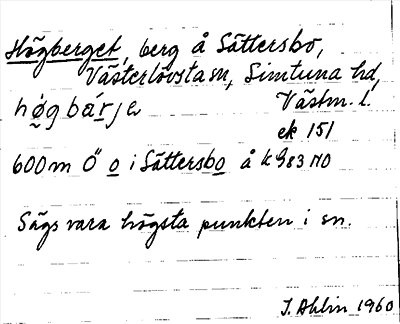 Högberget, berg å Sättersbo,
Västerlövsta sn, Simtuna hd,
högbárjə Västm. l.
ek 151
600 m Ö o i Sättersbo å k 983 NO
Sägs vara högsta punkten i sn.
J. Ahlin 1960